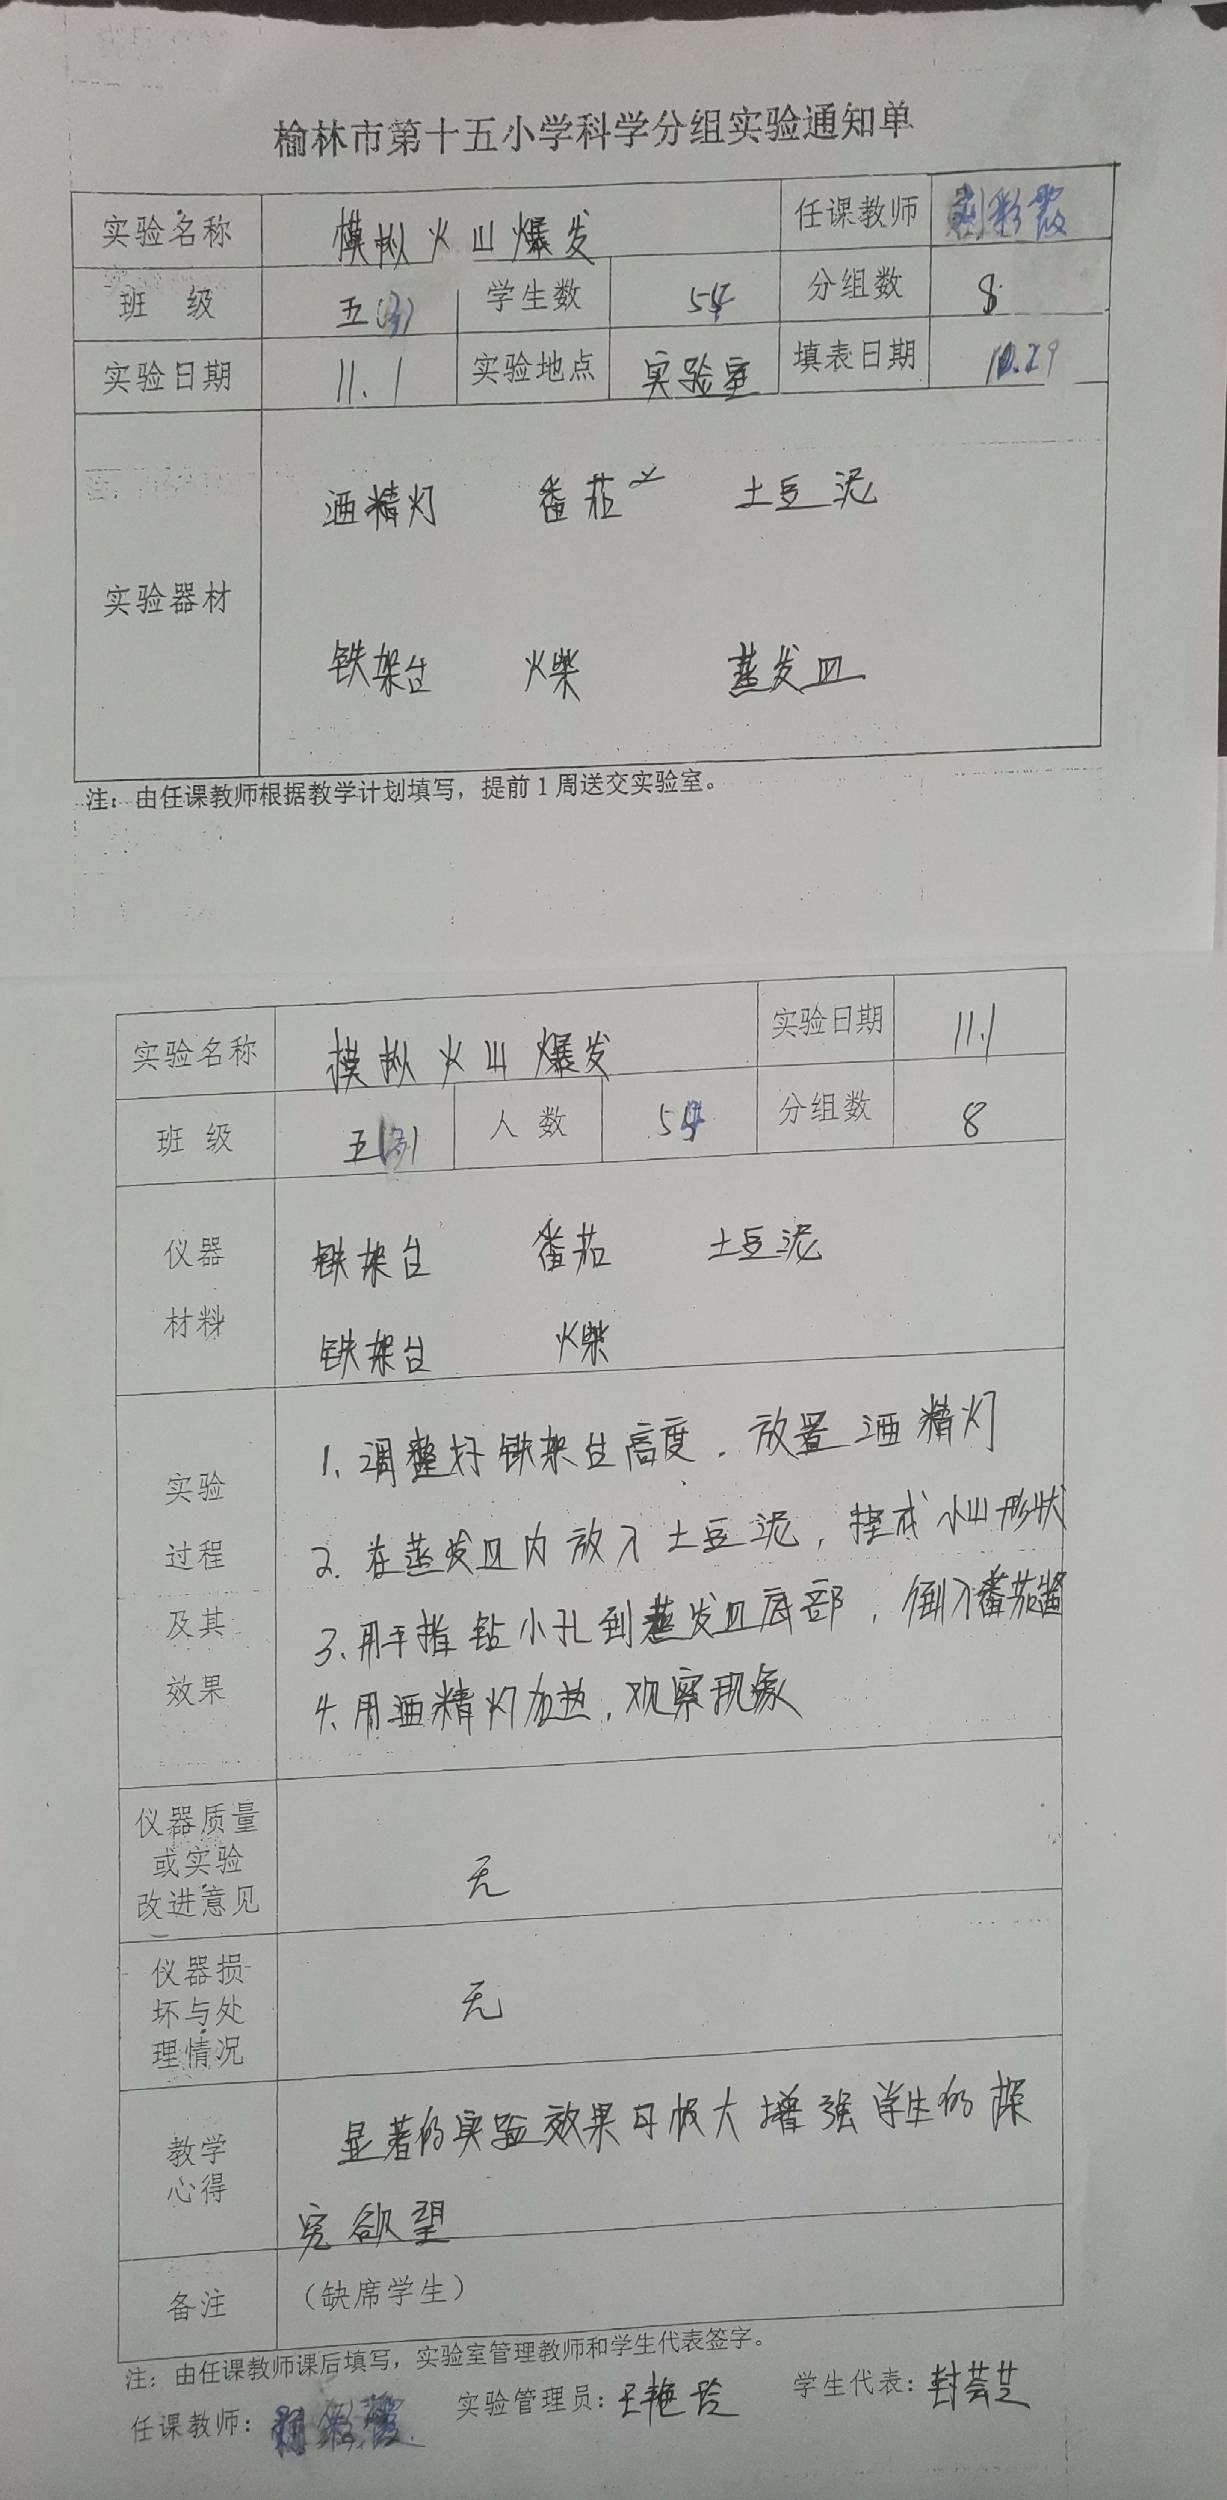 榆林市第十五小学科学分组实验通知单
实验名称 模拟火山爆发 任课教师 彩霞
班 级 五(3) 学生数 54 分组数 8
实验日期 11.1 实验地点 实验室 填表日期 10.29
实验器材
酒精灯 番茄 土豆泥
铁架台 火柴 蒸发皿
注：由任课教师根据教学计划填写，提前1周送交实验室。
实验名称 模拟火山爆发 实验日期 11.1
班 级 五(3) 人 数 54 分组数 8
仪器材料
铁架台 番茄 土豆泥
铁架台 火柴
实验过程及其效果
1、调整好铁架台高度，放置酒精灯
2. 在蒸发皿内放入土豆泥，捏成小山形状
3、用手指钻小孔到蒸发皿底部，倒入番茄酱
4、用酒精灯加热，观察现象
仪器质量或实验改进意见 无
仪器损坏与处理情况 无
教学心得
显著的实验效果可极大增强学生的探
究欲望
备注 （缺席学生）
注：由任课教师课后填写，实验室管理教师和学生代表签字。
任课教师： 实验管理员：王艳玲 学生代表：封芸芝